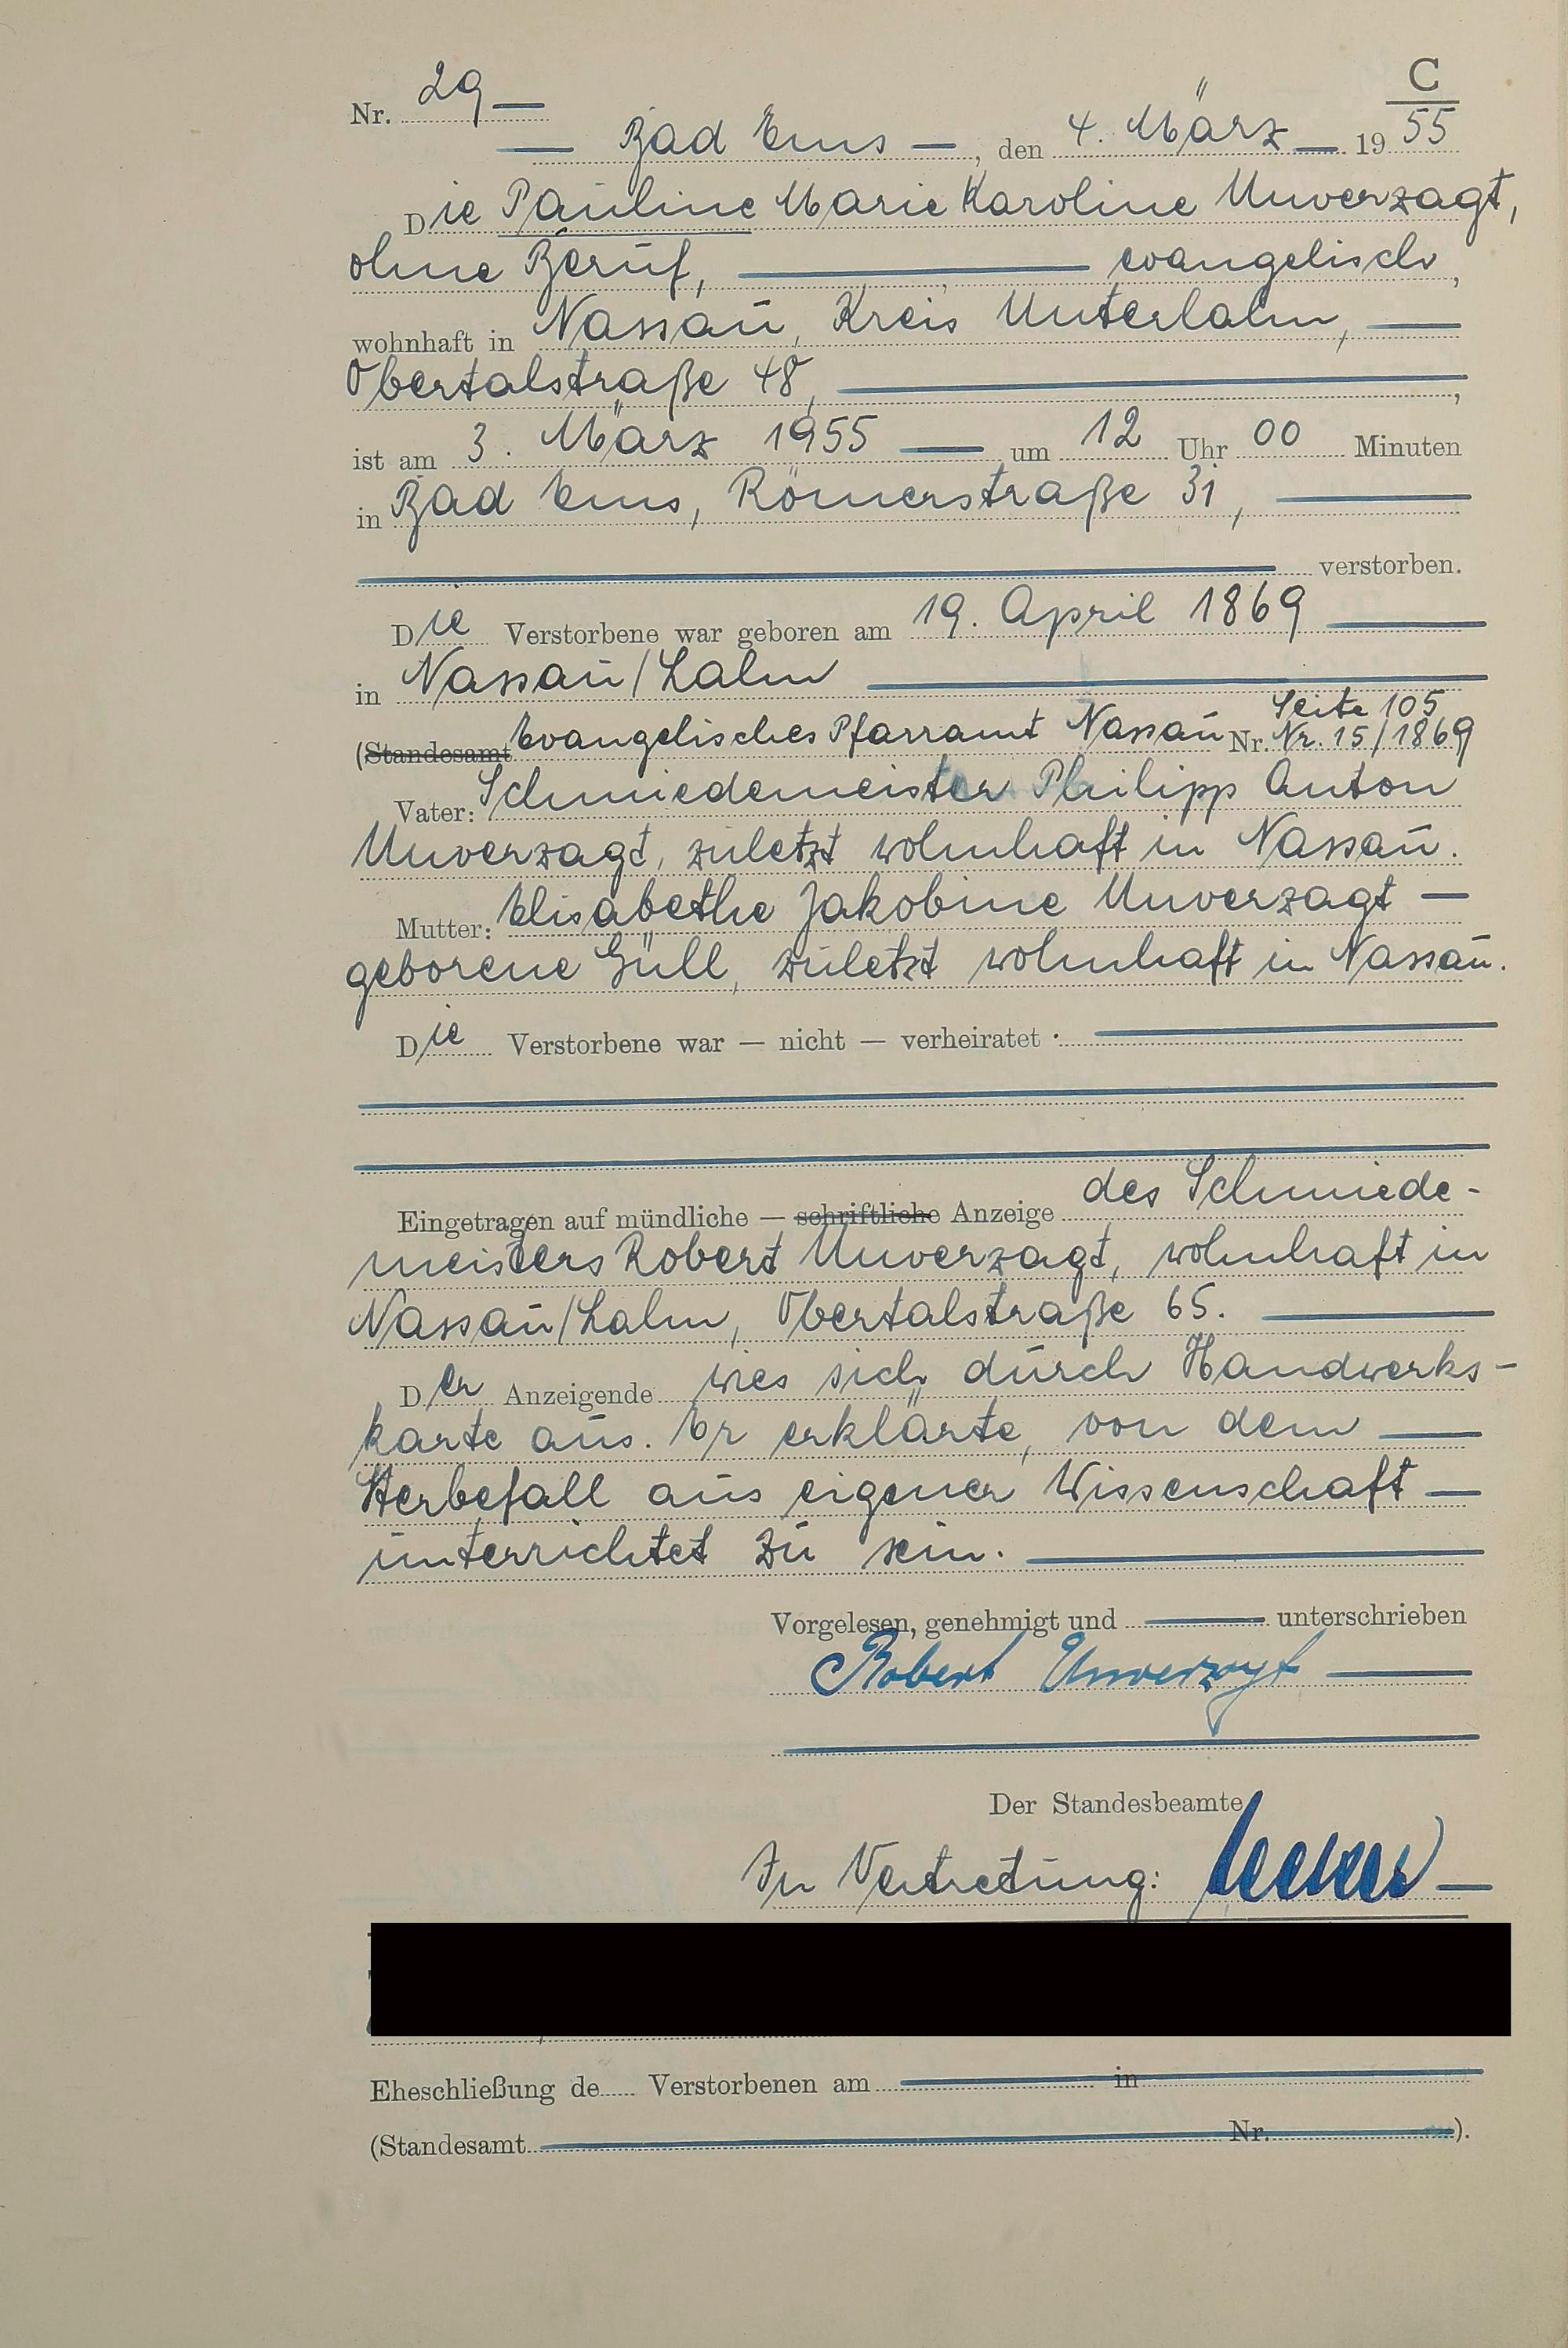 C
Nr. 29
Bad Ems, den 4. März 1955
Die Pauline Marie Karoline Unverzagt,
ohne Beruf, evangelisch,
wohnhaft in Nassau, Kreis Unterlahn,
Obertalstraße 48,
ist am 3. März 1955 um 12 Uhr 00 Minuten
in Bad Ems, Römerstraße 31,
verstorben.
Die Verstorbene war geboren am 19. April 1869
in Nassau/Lahn
Seite 105
(Standesamt Evangelisches Pfarramt Nassau Nr. Nr. 15/1869
Vater: Schmiedemeister Philipp Anton
Unverzagt, zuletzt wohnhaft in Nassau.
Mutter: Elisabethe Jakobine Unverzagt
geborene Güll, zuletzt wohnhaft in Nassau.
Die Verstorbene war — nicht — verheiratet.
Eingetragen auf mündliche — schriftliche Anzeige des Schmiede-
meisters Robert Unverzagt, wohnhaft in
Nassau/Lahn, Obertalstraße 65.
Der Anzeigende wies sich durch Handwerks-
karte aus. Er erklärte, von dem
Sterbefall aus eigener Wissenschaft
unterrichtet zu sein.
Vorgelesen, genehmigt und unterschrieben
Robert Unverzagt
Der Standesbeamte
In Vertretung:
Eheschließung de Verstorbenen am in
(Standesamt Nr. ).